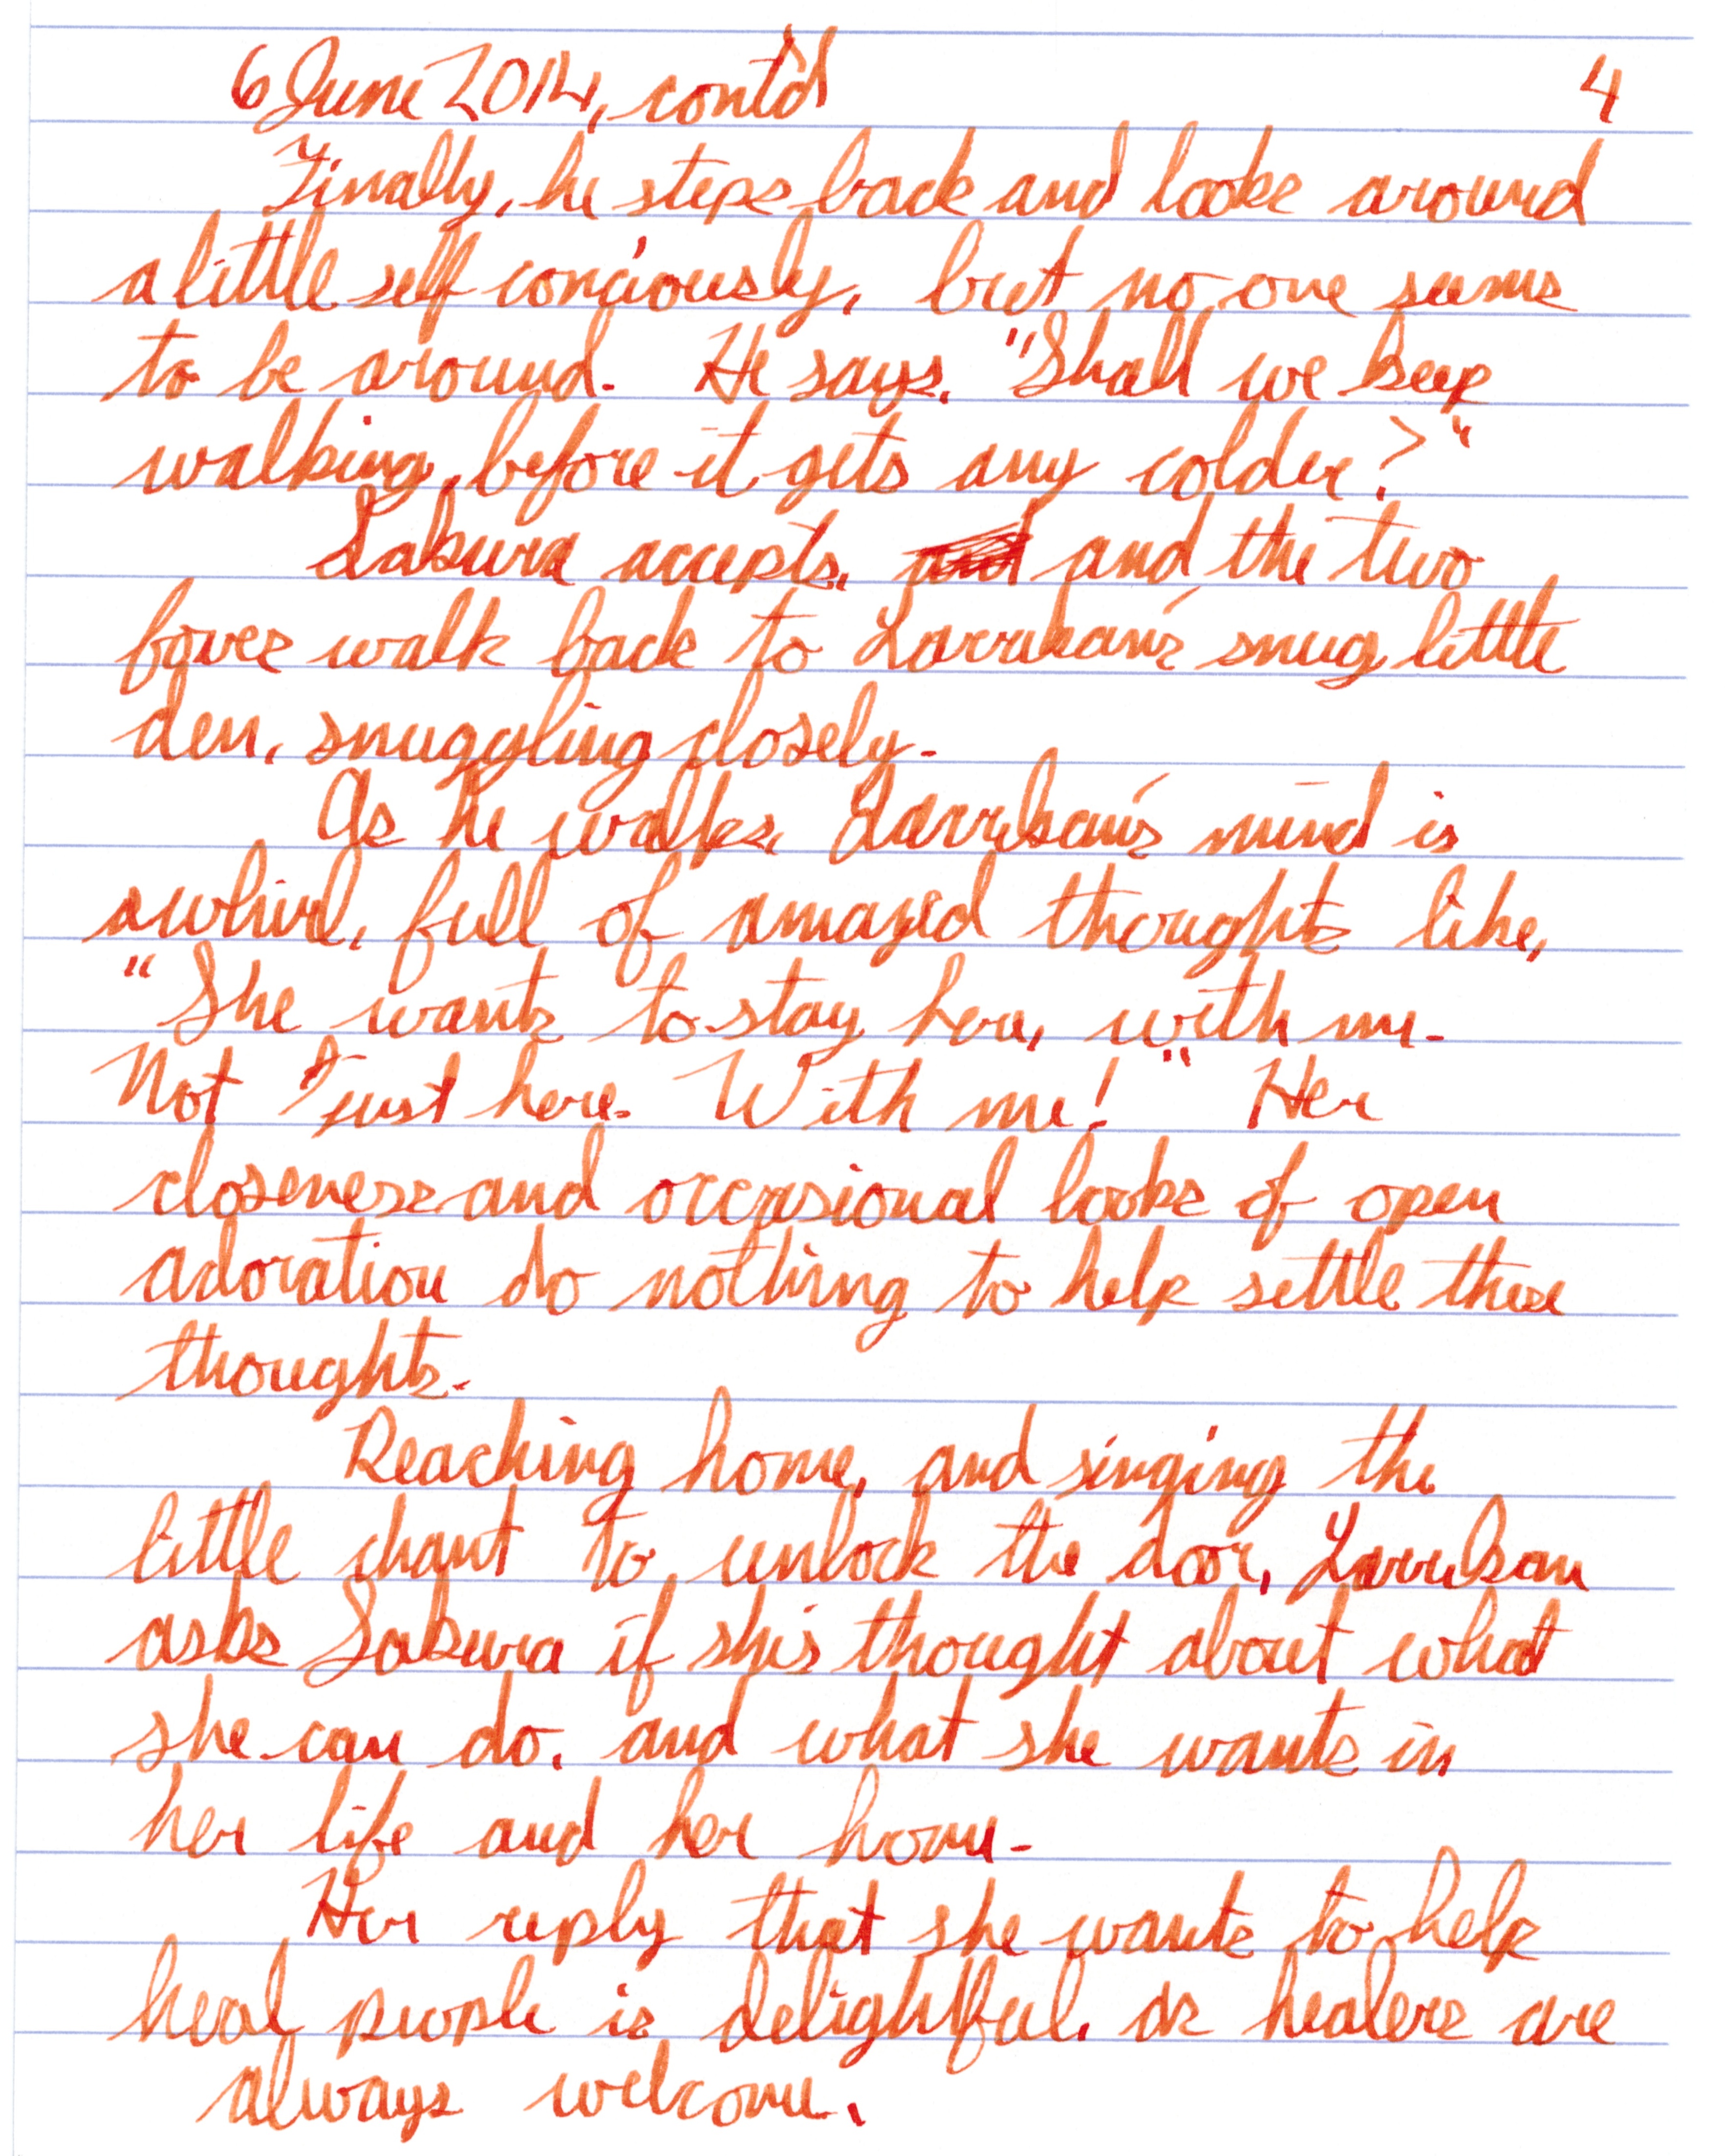 6 June 2014, cont'd 4
Finally, he steps back and looks around
a little self conciously, but no one seems
to be around. He says, "Shall we keep
walking, before it gets any colder?"
Sakura accepts, and and the two
foxes walk back to Larrikan's snug little
den, snuggling closely.
As he walks, Larrikan's mind is
awhirl, full of amazed thoughts like,
"She wants to stay here, with me.
Not just here. With me!" Her
closeness and occasional looks of open
adoration do nothing to help settle these
thoughts.
Reaching home, and singing the
little chant to unlock the door, Larrikan
asks Sakura if she's thought about what
she can do, and what she wants in
her life and her home.
Her reply that she wants to help
heal people is delightful, as healers are
always welcome.